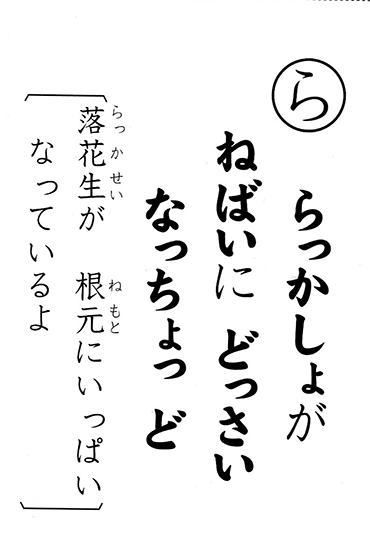 ら
らっかしょが
ねばいに どっさい
なっちょっ ど
落花生が 根元にいっぱい
らっかせい ねもと
なっているよ